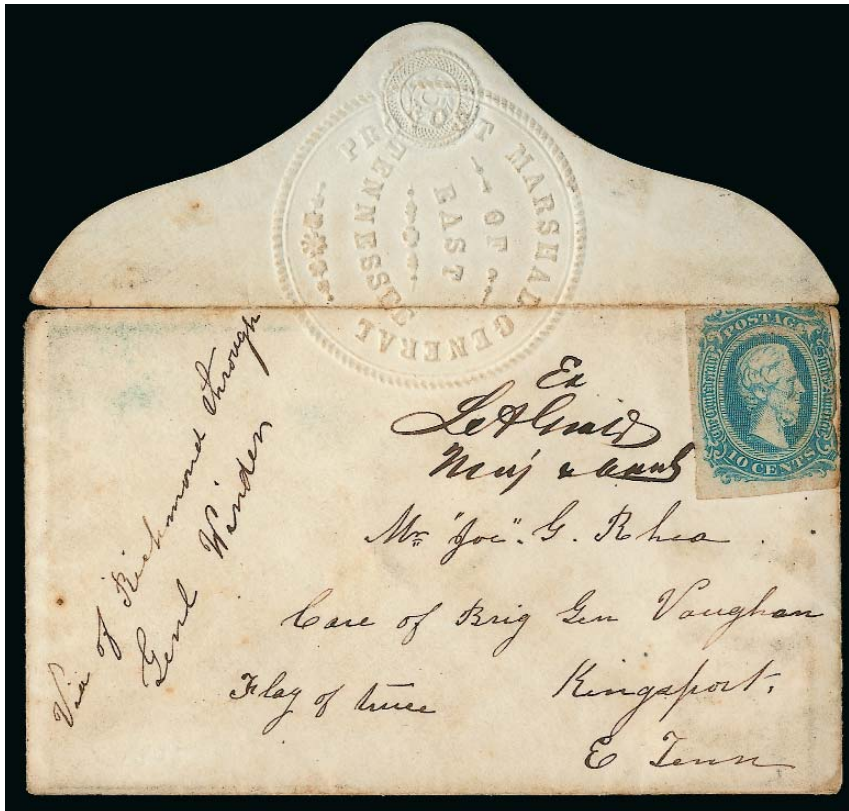 PROVOST MARSHAL GENERAL
OF
EAST
TENNESSEE
POSTAGE
The Confederate States of America
10 CENTS
Via of Richmond through
Genl Winder
Ex
Maj &
Mr "Joe". G. Rhea
Care of Brig Gen Vaughan
Flag of truce
Kingsport,
E Tenn